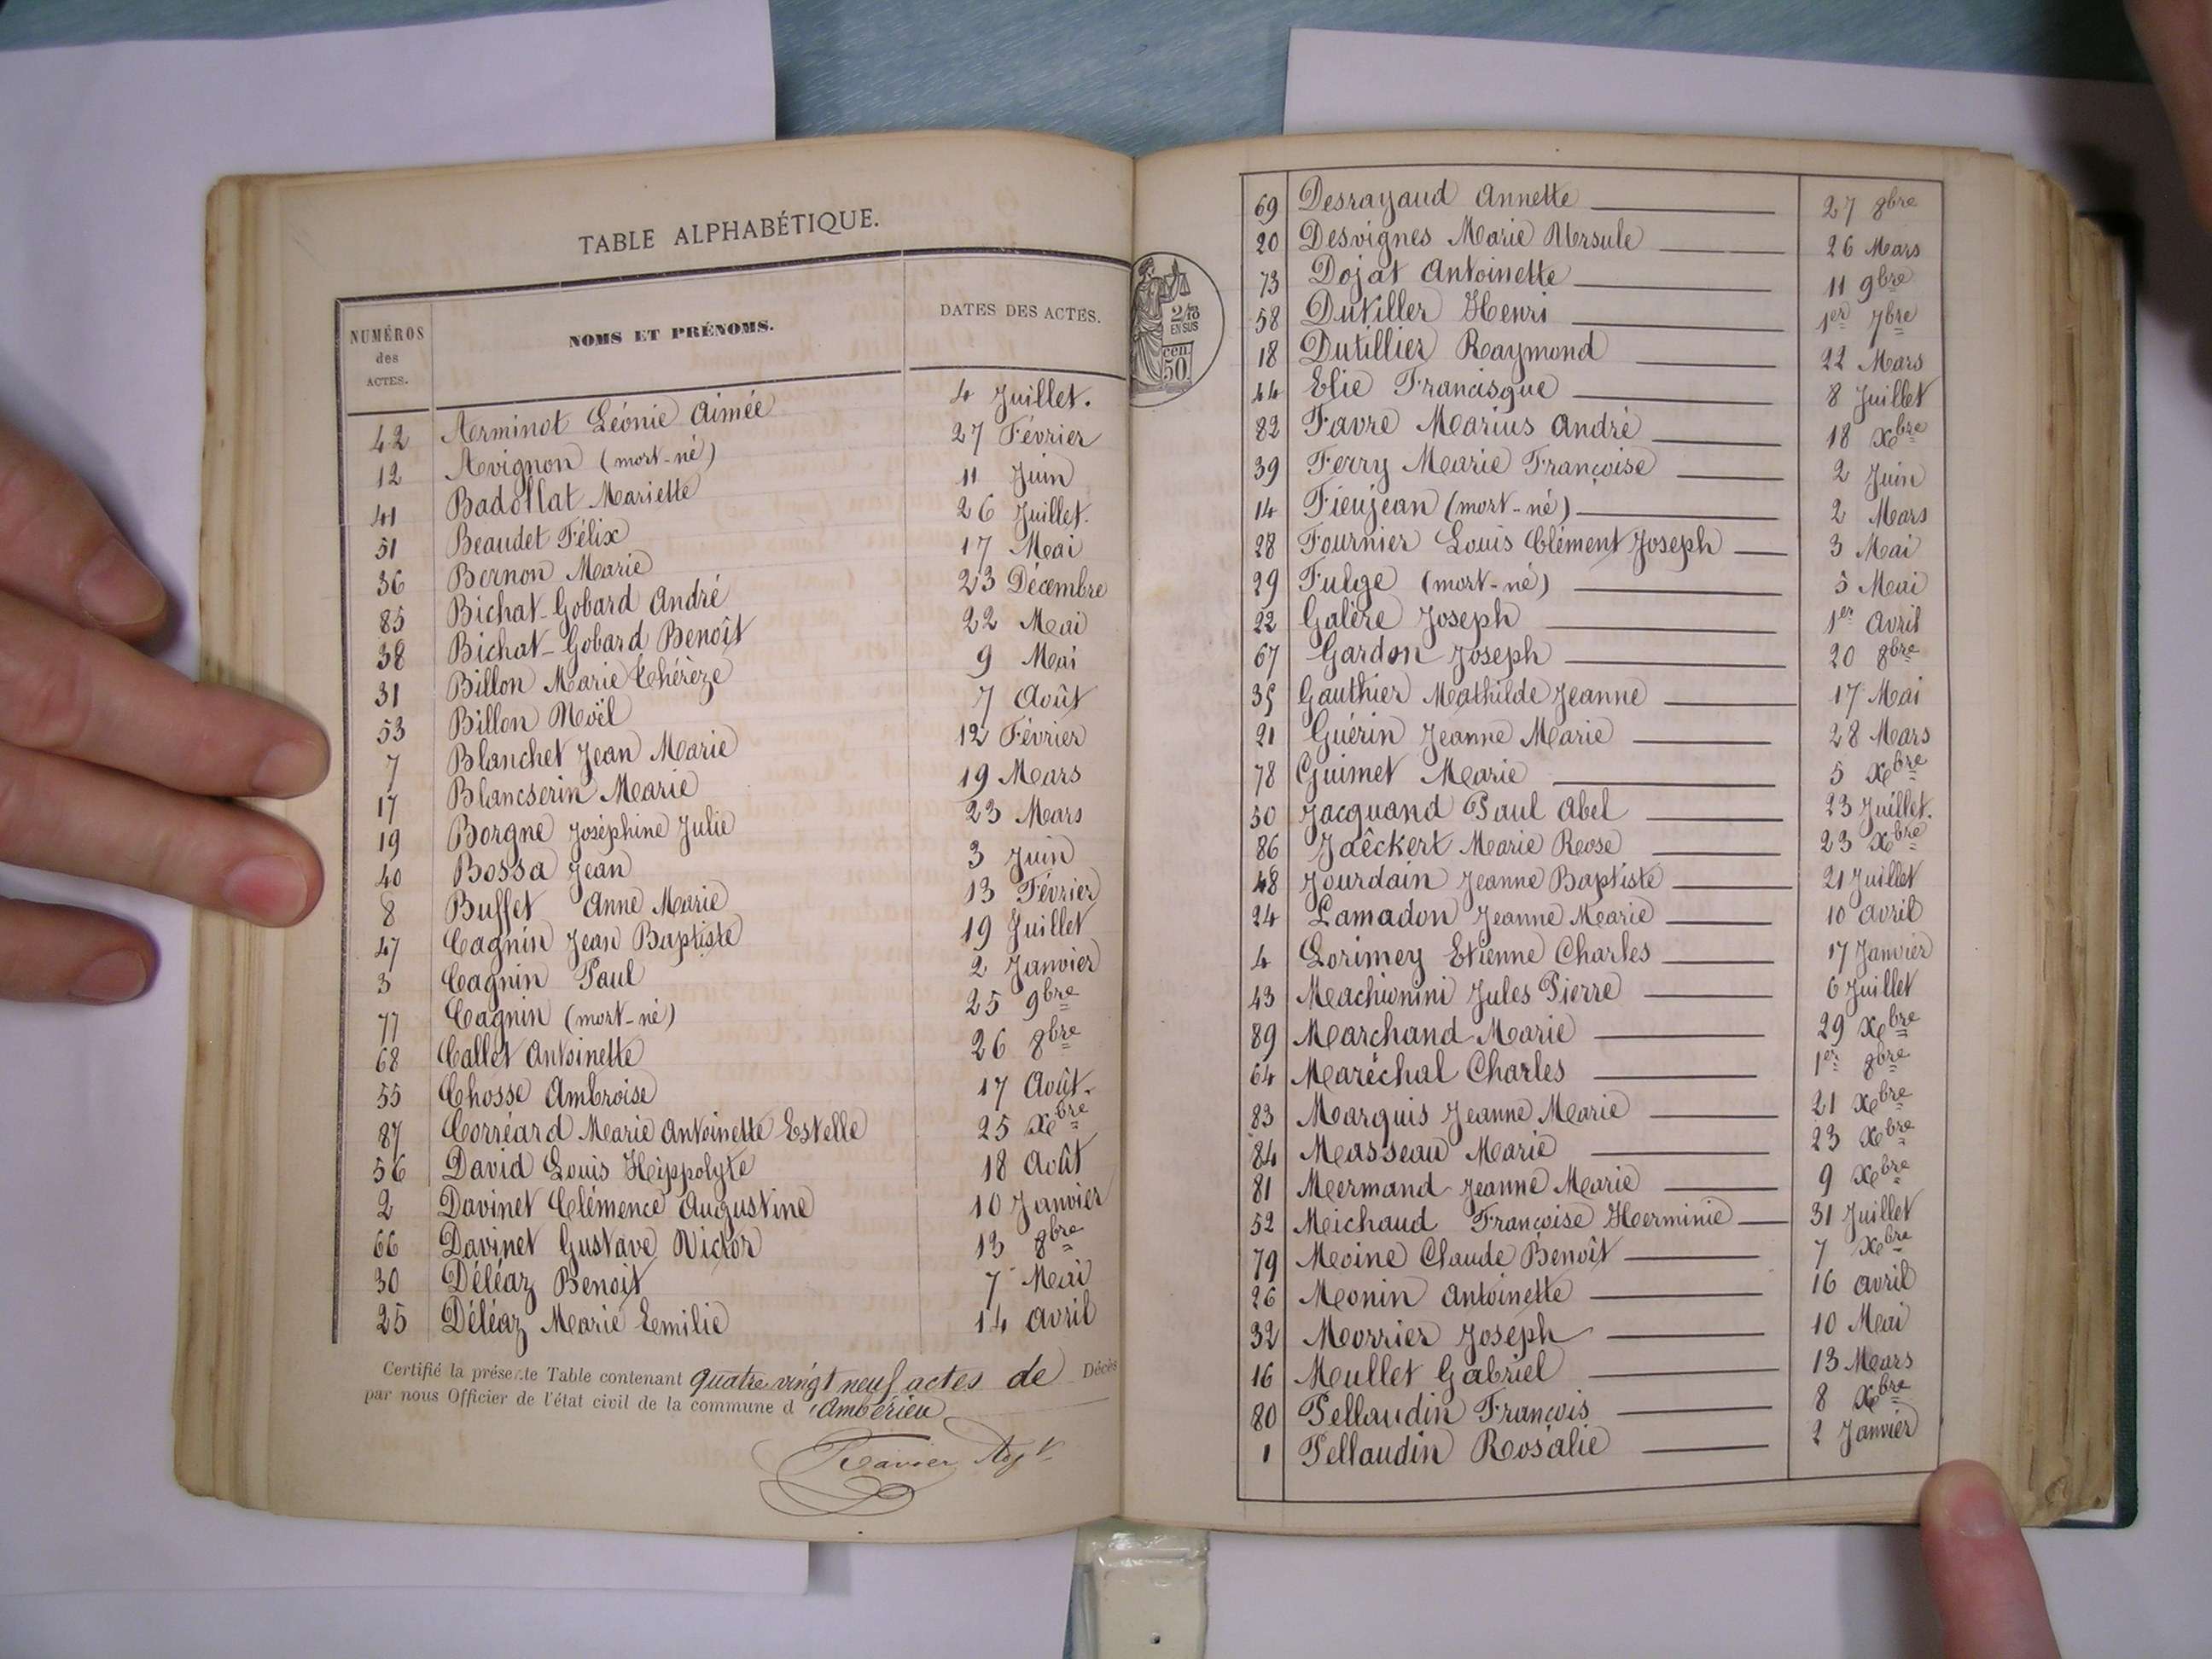 TABLE ALPHABÉTIQUE.
NUMÉROS des ACTES. NOMS ET PRÉNOMS. DATES DES ACTES.
42 Arminot Léonie Aimée 4 Juillet.
12 Avignon (mort-né) 27 Février
41 Badollat Mariette 11 Juin
51 Beaudet Félix 26 Juillet.
36 Bernon Marie 17 Mai
85 Bichat-Gobard André 23 Décembre
38 Bichat-Gobard Benoît 22 Mai
31 Billon Marie Thérèze 9 Mai
53 Billon Noël 7 Août
7 Blanchet Jean Marie 12 Février
17 Blancserin Marie 19 Mars
19 Borgne Joséphine Julie 23 Mars
40 Bossa Jean 3 Juin
8 Buffet Anne Marie 13 Février
47 Cagnin Jean Baptiste 19 Juillet
3 Cagnin Paul 2 Janvier
77 Cagnin (mort-né) 25 9bre
68 Callet Antoinette 26 8bre
55 Chosse Ambroise 17 Août.
87 Corréard Marie Antoinette Estelle 25 Xbre
56 David Louis Hippolyte 18 Août
2 Davinet Clémence Augustine 10 Janvier
66 Davinet Gustave Victor 13 8bre
30 Déléaz Benoit 7 Mai
25 Déléaz Marie Emilie 14 Avril
Certifié la présente Table contenant quatre vingt neuf actes de Décès
par nous Officier de l'état civil de la commune d'Ambérieu
Ravier Adjt
2/10
EN SUS
50 cen.
69 Desrayaud Annette 27 8bre
20 Desvignes Marie Ursule 26 Mars
73 Dojat Antoinette 11 9bre
58 Dutiller Henri 1er 7bre
18 Dutillier Raymond 22 Mars
44 Elie Francisque 8 Juillet
82 Favre Marius André 18 Xbre
39 Ferry Marie Françoise 2 Juin
14 Fieujean (mort-né) 2 Mars
28 Fournier Louis Clément Joseph 3 Mai
29 Fulge (mort-né) 5 Mai
22 Galère Joseph 1er Avril
67 Gardon Joseph 20 8bre
35 Gauthier Mathilde Jeanne 17 Mai
21 Guérin Jeanne Marie 28 Mars
78 Guimet Marie 5 Xbre
50 Jacquand Paul Abel 23 Juillet.
86 Jaëckert Marie Rose 23 Xbre
48 Jourdain Jeanne Baptiste 21 Juillet
24 Lamadon Jeanne Marie 10 Avril
4 Lorimey Etienne Charles 17 Janvier
43 Machionini Jules Pierre 6 Juillet
89 Marchand Marie 29 Xbre
64 Maréchal Charles 1er 8bre
83 Marquis Jeanne Marie 21 Xbre
84 Masseau Marie 23 Xbre
81 Mermand Jeanne Marie 9 Xbre
52 Michaud Françoise Herminie 31 Juillet
79 Moine Claude Benoît 7 Xbre
26 Monin Antoinette 16 Avril
32 Morrier Joseph 10 Mai
16 Mullet Gabriel 13 Mars
80 Pellaudin François 8 Xbre
1 Pellaudin Rosalie 2 Janvier